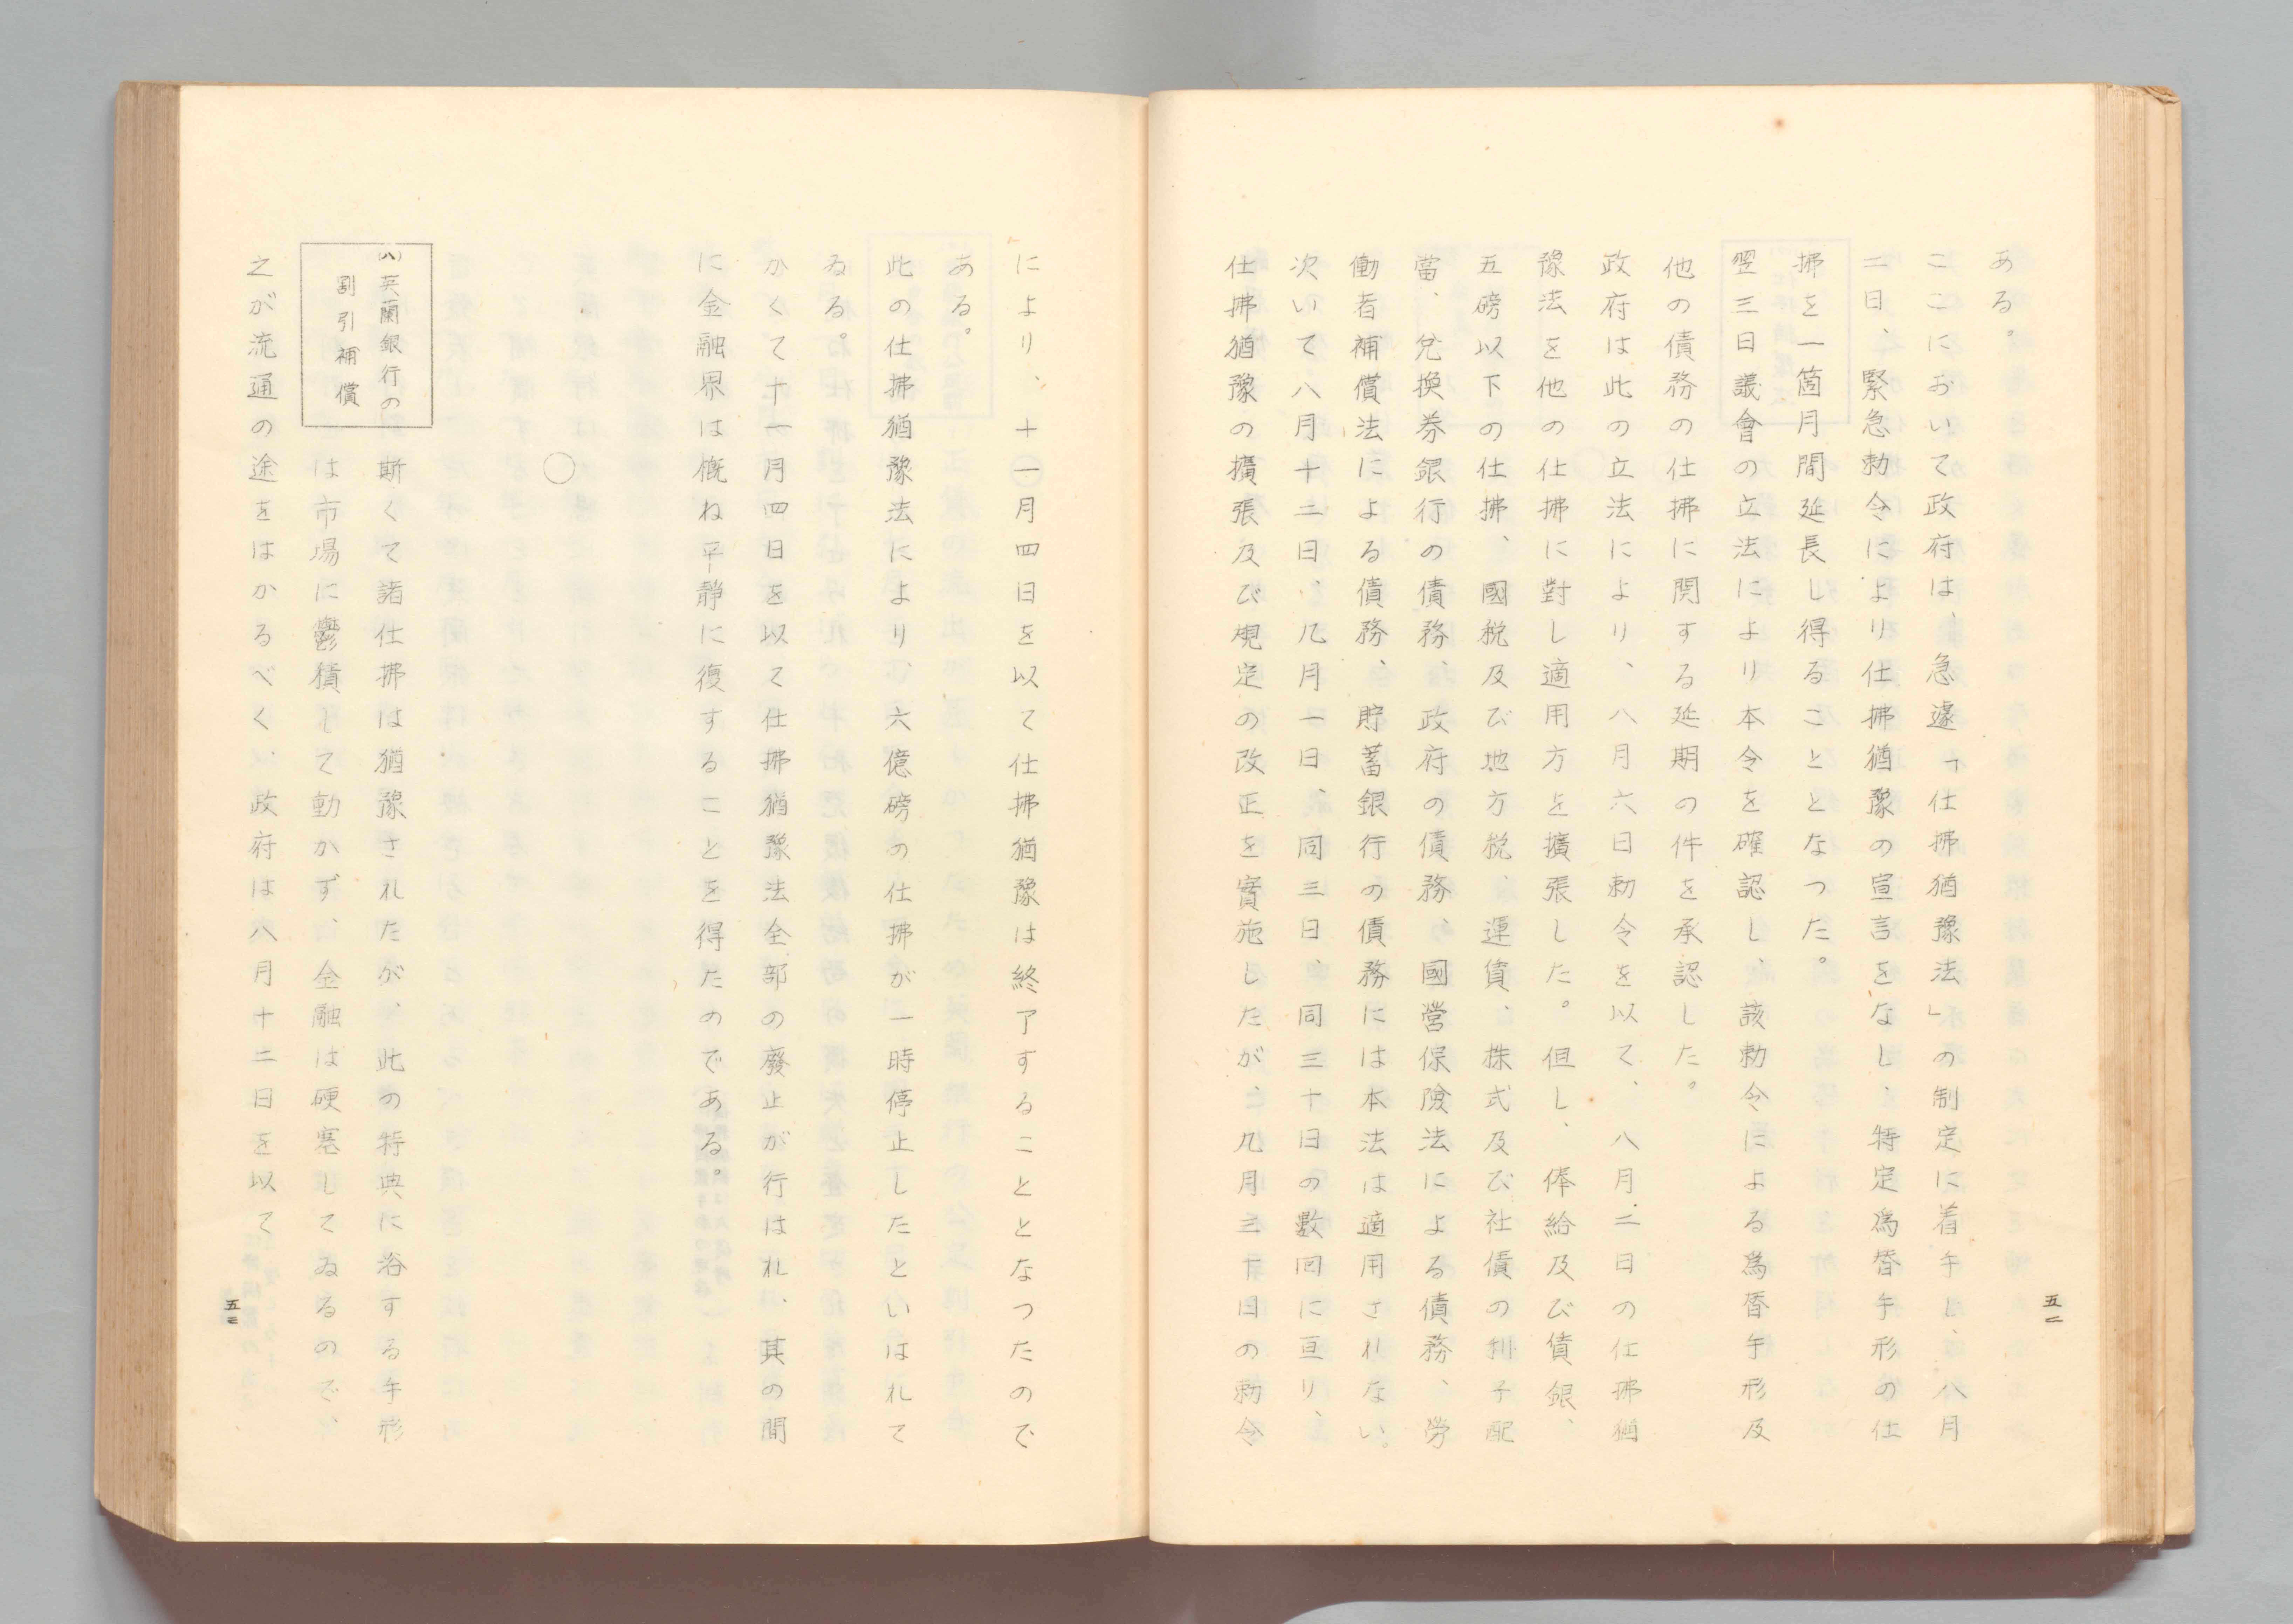 ある。
ここにおいて政府は、急遽「仕拂猶豫法」の制定に着手し、八月
二日、緊急勅令により仕拂猶豫の宣言をなし、特定爲替手形の仕
拂を一箇月間延長し得ることとなつた。
翌三日議會の立法により本令を確認し、該勅令による爲替手形及
他の債務の仕拂に関する延期の件を承認した。
政府は此の立法により、八月六日勅令を以て、八月二日の仕拂猶
豫法を他の仕拂に對し適用方を擴張した。但し、俸給及び債銀、
五磅以下の仕拂、國税及び地方税、運賃、株式及び社債の利子配
當、兌換券銀行の債務、政府の債務、國營保險法による債務、勞
働者補償法による債務、貯蓄銀行の債務には本法は適用されない。
次いで八月十二日、九月一日、同三日、同三十日の數回に亘り、
仕拂猶豫の擴張及び規定の改正を實施したが、九月三十日の勅令
五二
により、十一月四日を以て仕拂猶豫は終了することとなつたので
ある。
此の仕拂猶豫法により、六億磅の仕拂が一時停止したといはれて
ゐる。
かくて十一月四日を以て仕拂猶豫法全部の廢止が行はれ、其の間
に金融界は概ね平静に復することを得たのである。
○
(八)英蘭銀行の
割引補償
斯くて諸仕拂は猶豫されたが、此の特典に浴する手形
は市場に鬱積して動かず、金融は硬塞してゐるので、
之が流通の途をはかるべく、政府は八月十二日を以て
五三